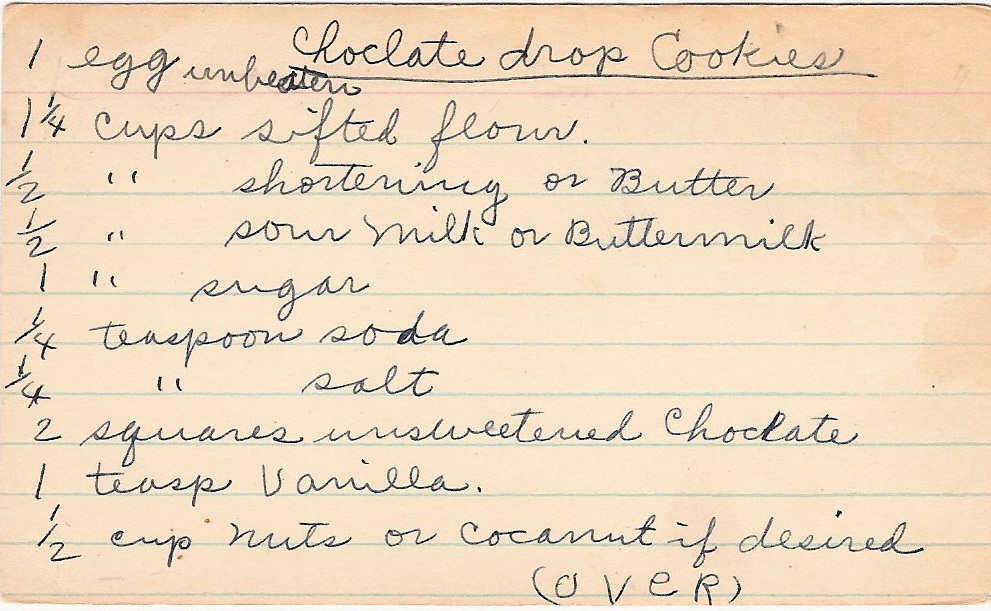 Choclate drop Cookies
1 egg unbeaten
1 1/4 cups sifted flour.
1/2 " shortening or Butter
1/2 " sour milk or Buttermilk
1 " sugar
1/4 teaspoon soda
1/4 " salt
2 squares unsweetened Choclate
1 teasp Vanilla.
1/2 cup nuts or cocanut if desired
(OVER)